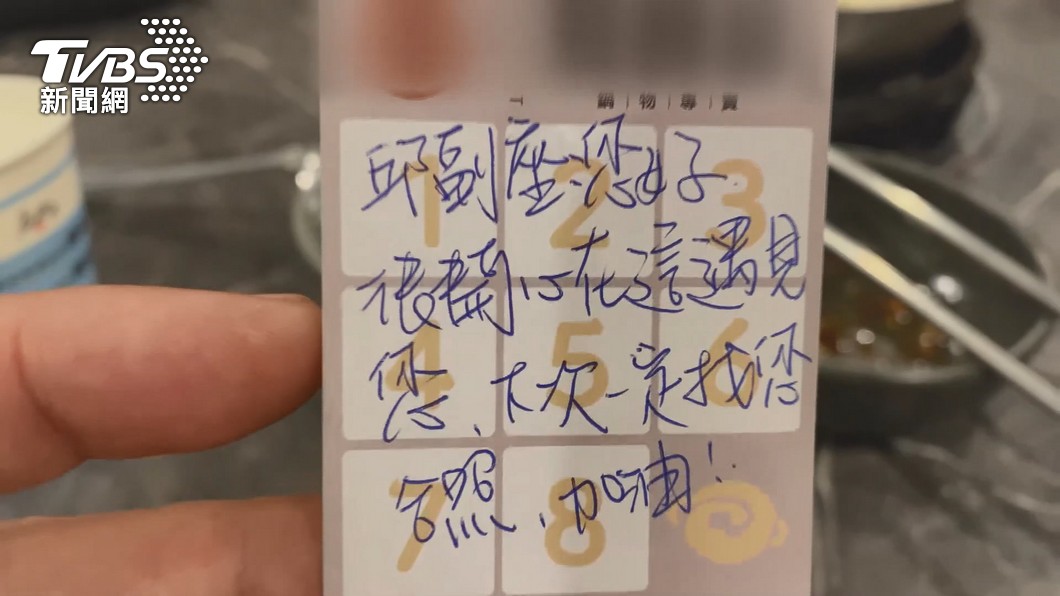 TVBS
新聞網
鍋｜物｜專｜賣
邱副座:您好
很開心在這遇見
您、下次一定找您
合照、加油!
1
2
3
4
5
6
7
8